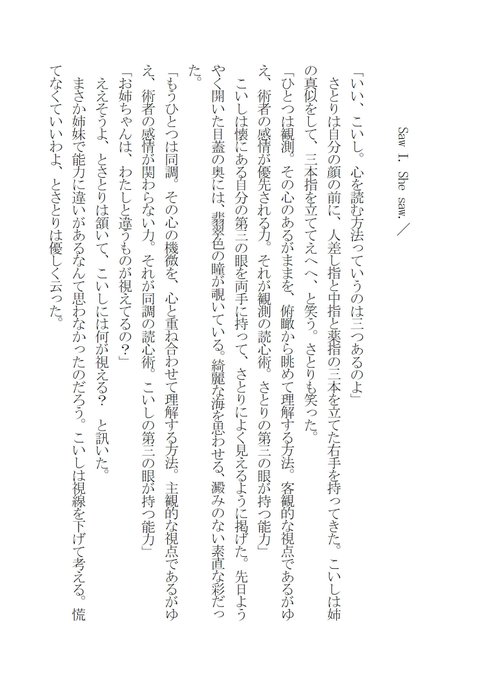 Saw I. She saw. ／
「いい、こいし。心を読む方法っていうのは三つあるのよ」
　さとりは自分の顔の前に、人差し指と中指と薬指の三本を立てた右手を持ってきた。こいしは姉
の真似をして、三本指を立ててえへへ、と笑う。さとりも笑った。
「ひとつは観測。その心のあるがままを、俯瞰から眺めて理解する方法。客観的な視点であるがゆ
え、術者の感情が優先される力。それが観測の読心術。さとりの第三の眼が持つ能力」
　こいしは懐にある自分の第三の眼を両手に持って、さとりによく見えるように掲げた。先日よう
やく開いた目蓋の奥には、翡翠色の瞳が覗いている。綺麗な海を思わせる、澱みのない素直な彩だっ
た。
「もうひとつは同調。その心の機微を、心と重ね合わせて理解する方法。主観的な視点であるがゆ
え、術者の感情が関わらない力。それが同調の読心術。こいしの第三の眼が持つ能力」
「お姉ちゃんは、わたしと違うものが視えてるの？」
　ええそうよ、とさとりは頷いて、こいしには何が視える？　と訊いた。
　まさか姉妹で能力に違いがあるなんて思わなかったのだろう。こいしは視線を下げて考える。慌
てなくていいわよ、とさとりは優しく云った。